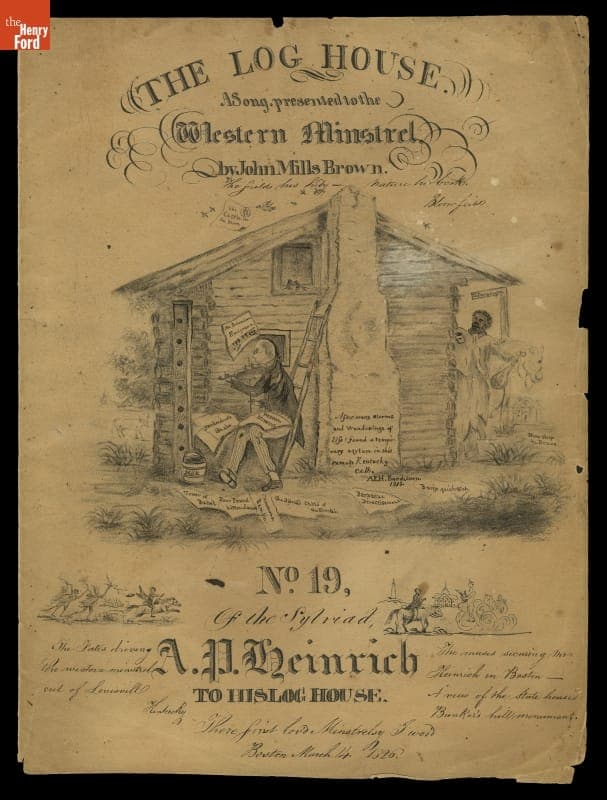 the
Henry
Ford
THE LOG HOUSE.
A Song, presented to the
Western Minstrel,
by John Mills Brown.
The fields his study — nature his book.
Bloomfield
After many storms
and Wanderings of
Life I found a tempo-
rary asylum in this
remote Kentucky
Cell,
A.P.H. Bardstown
1818.
Ink
Tower of
Babel
Barbecue
Divertimento
N.º 19,
Of the Sylviad,
A.P. Heinrich
TO HIS LOG HOUSE.
The Fates driving
the western minstrel
out of Louisvill
Kentucky
The muses securing Mr.
Heinrich in Boston —
A view of the State house
Bunker's hill monument.
There first lov'd Minstrelsy I woo'd
Boston March 4 1826.